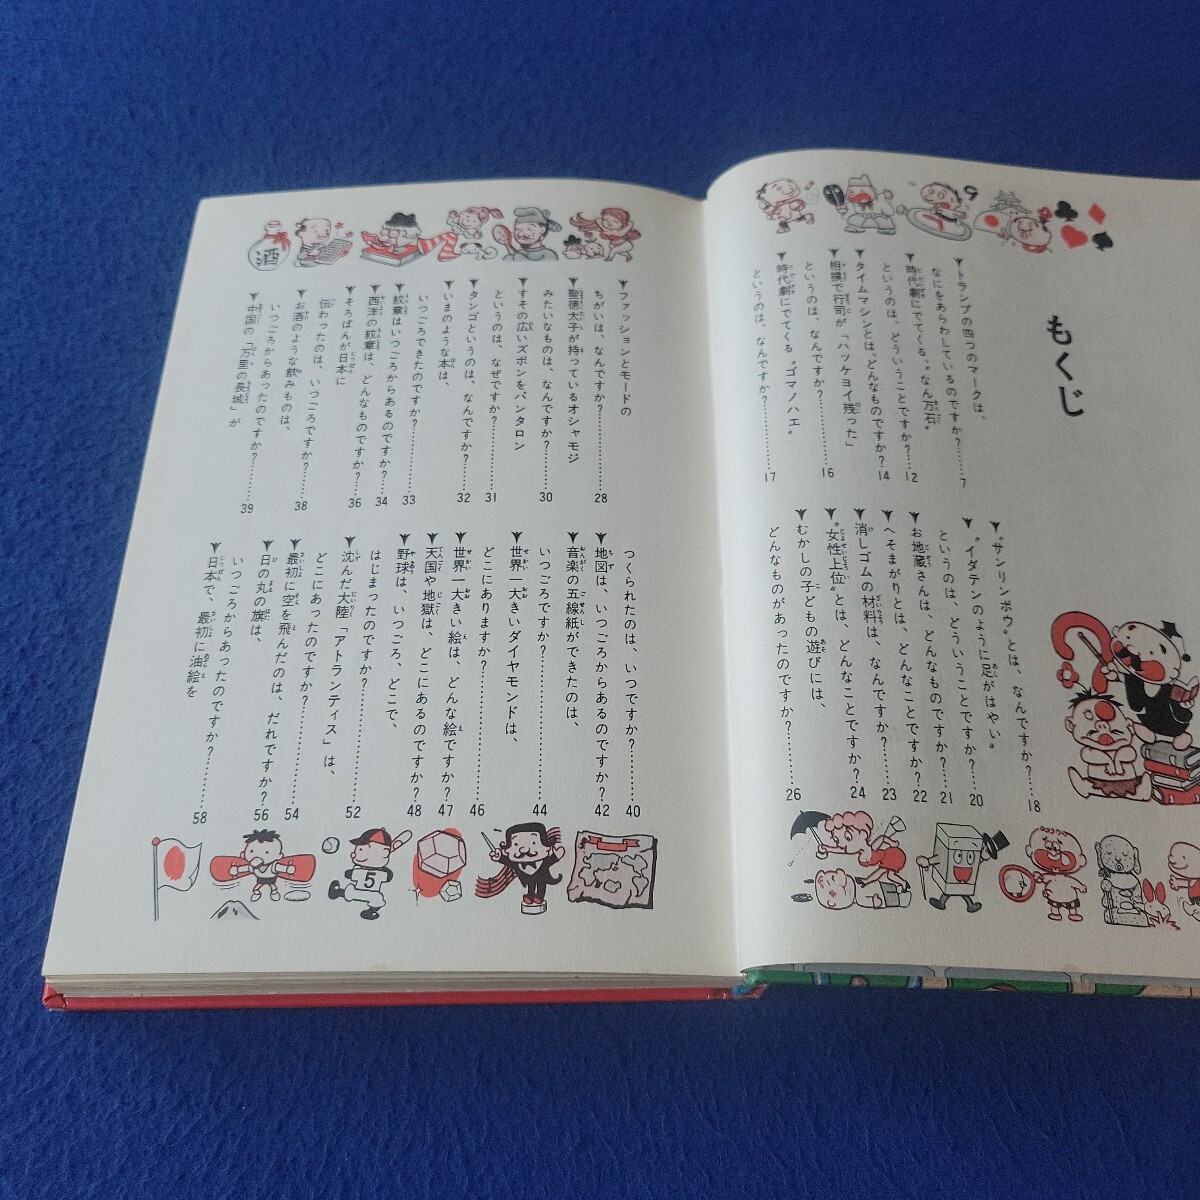 もくじ
トランプの四つのマークは、
なにをあらわしているのですか?……7
時代劇にでてくる“なん万石”
というのは、どういうことですか?……12
タイムマシンとは、どんなものですか?……14
相撲で行司が「ハッケヨイ残った」
というのは、なんですか?……16
時代劇にでてくる“ゴマノハエ”
というのは、なんですか?……17
“サンリンボウ”とは、なんですか?……18
“イダテンのように足がはやい”
というのは、どういうことですか?……20
お地蔵さんは、どんなものですか?……21
へそまがりとは、どんなことですか?……22
消しゴムの材料は、なんですか?……23
“女性上位”とは、どんなことですか?……24
むかしの子どもの遊びには、
どんなものがあったのですか?……26
ファッションとモードの
ちがいは、なんですか?……28
聖徳太子が持っているオシャモジ
みたいなものは、なんですか?……30
すその広いズボンをパンタロン
というのは、なぜですか?……31
タンゴというのは、なんですか?……32
いまのような本は、
いつごろできたのですか?……33
紋章はいつごろからあるのですか?……34
西洋の紋章は、どんなものですか?……36
そろばんが日本に
伝わったのは、いつごろですか?……38
お酒のような飲みものは、
いつごろからあったのですか?……39
中国の「万里の長城」が
つくられたのは、いつですか?……40
地図は、いつごろからあるのですか?……42
音楽の五線紙ができたのは、
いつごろですか?……44
世界一大きいダイヤモンドは、
どこにありますか?……46
世界一大きい絵は、どんな絵ですか?……47
天国や地獄は、どこにあるのですか?……48
野球は、いつごろ、どこで、
はじまったのですか?……52
沈んだ大陸「アトランティス」は、
どこにあったのですか?……54
最初に空を飛んだのは、だれですか?……56
日の丸の旗は、
いつごろからあったのですか?……58
日本で、最初に油絵を
酒
5